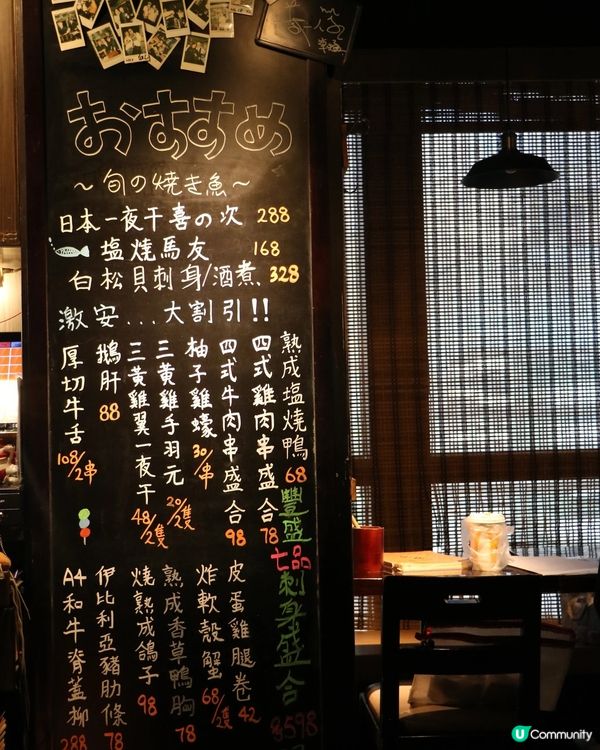 おすすめ
～旬の焼き魚～
日本一夜干喜の次 288
塩燒馬友 168
白松貝刺身/酒煮 328
激安...大割引!!
熟成塩燒鴨 68
四式雞肉串盛合 78
四式牛肉串盛合 98
柚子雞蠔 30/串
三黃雞手羽元 20/2隻
三黃雞翼一夜干 48/2隻
鵝肝 88
厚切牛舌 108/2串
豐盛七品刺身盛合 $598
皮蛋雞腿卷 42
炸軟殼蟹 68/隻
熟成香草鴨胸 78
燒熟成鴿子 98
伊比利亞豬肋條 78
A4和牛脊蓋柳 288
U Community